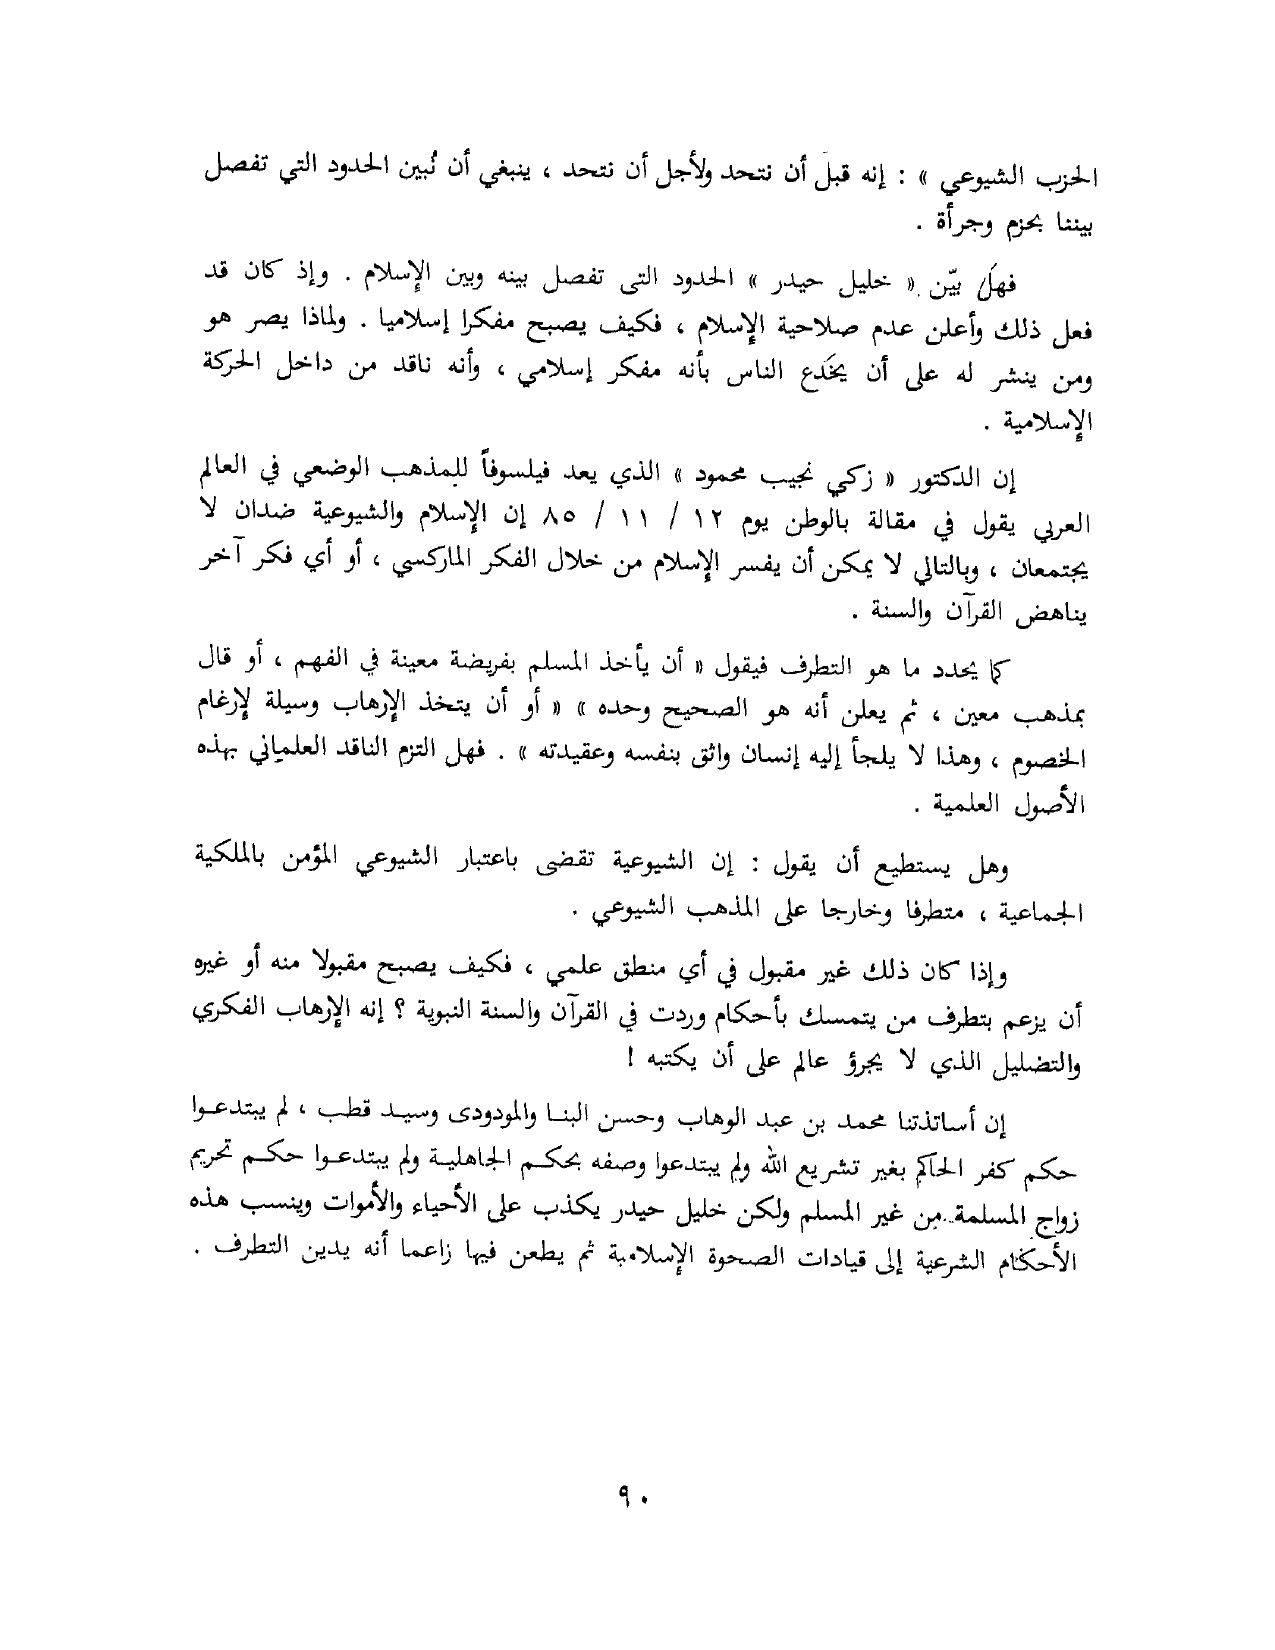 الحزب الشيوعي » : إنه قبل أن نتحد ولأجل أن نتحد ، ينبغي أن نُبين الحدود التي تفصل
بيننا بحزم وجرأة .
فهل بيّن « خليل حيدر » الحدود التى تفصل بينه وبين الإسلام . وإذ كان قد
فعل ذلك وأعلن عدم صلاحية الإسلام ، فكيف يصبح مفكرا إسلاميا . ولماذا يصر هو
ومن ينشر له على أن يخدع الناس بأنه مفكر إسلامي ، وأنه ناقد من داخل الحركة
الإسلامية .
إن الدكتور « زكي نجيب محمود » الذي يعد فيلسوفاً للمذهب الوضعي في العالم
العربي يقول في مقالة بالوطن يوم ١٢ / ١١ / ٨٥ إن الإسلام والشيوعية ضدان لا
يجتمعان ، وبالتالي لا يمكن أن يفسر الإسلام من خلال الفكر الماركسي ، أو أي فكر آخر
يناهض القرآن والسنة .
كما يحدد ما هو التطرف فيقول « أن يأخذ المسلم بفريضة معينة في الفهم ، أو قال
بمذهب معين ، ثم يعلن أنه هو الصحيح وحده » « أو أن يتخذ الإرهاب وسيلة لإرغام
الخصوم ، وهذا لا يلجأ إليه إنسان واثق بنفسه وعقيدته » . فهل التزم الناقد العلماني بهذه
الأصول العلمية .
وهل يستطيع أن يقول : إن الشيوعية تقضى باعتبار الشيوعي المؤمن بالملكية
الجماعية ، متطرفا وخارجا على المذهب الشيوعي .
وإذا كان ذلك غير مقبول في أي منطق علمي ، فكيف يصبح مقبولا منه أو غيره
أن يزعم بتطرف من يتمسك بأحكام وردت في القرآن والسنة النبوية ؟ إنه الإرهاب الفكري
والتضليل الذي لا يجرؤ عالم على أن يكتبه !
إن أساتذتنا محمد بن عبد الوهاب وحسن البنا والمودودى وسيد قطب ، لم يبتدعوا
حكم كفر الحاكم بغير تشريع الله ولم يبتدعوا وصفه بحكم الجاهلية ولم يبتدعوا حكم تحريم
زواج المسلمة من غير المسلم ولكن خليل حيدر يكذب على الأحياء والأموات وينسب هذه
الأحكام الشرعية إلى قيادات الصحوة الإسلامية ثم يطعن فيها زاعما أنه يدين التطرف .
٩٠